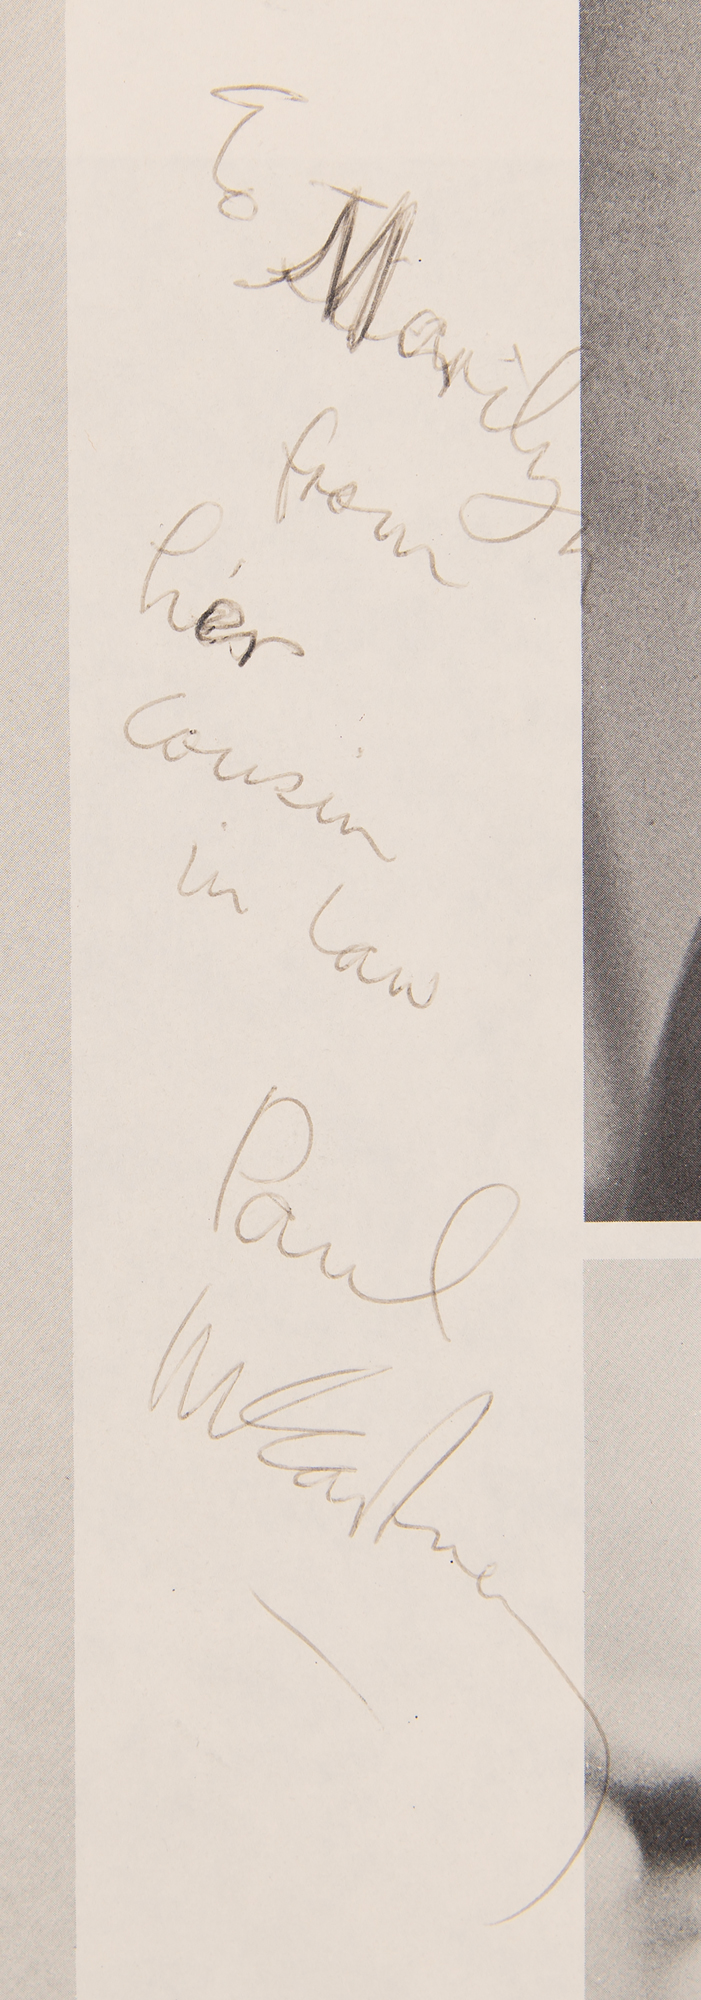 To Marilyn
from
her
cousin
in law
Paul
McCartney